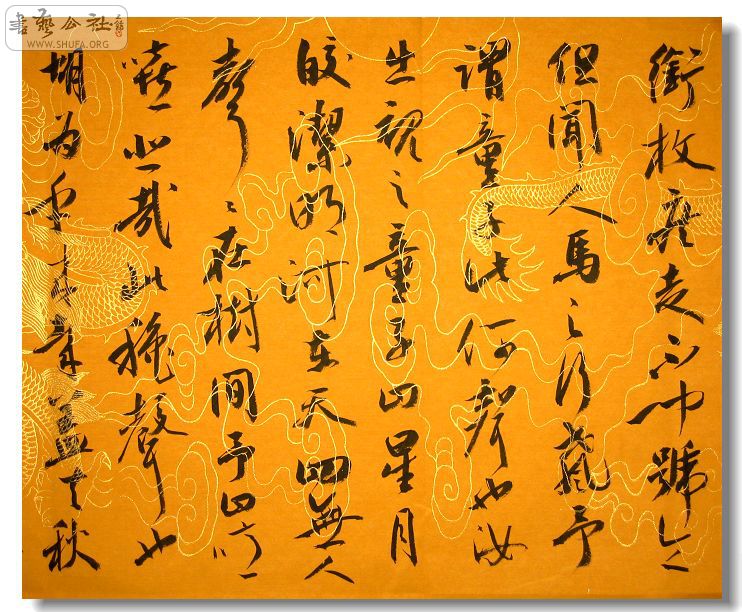 書藝公社
WWW.SHUFA.ORG
銜枚疾走不聞號令
但聞人馬之行聲予
謂童子此何聲也汝
出視之童子曰星月
皎潔明河在天四無人
聲〻在樹間予曰噫
嘻悲哉此穐聲也
胡為乎來哉蓋夫秋